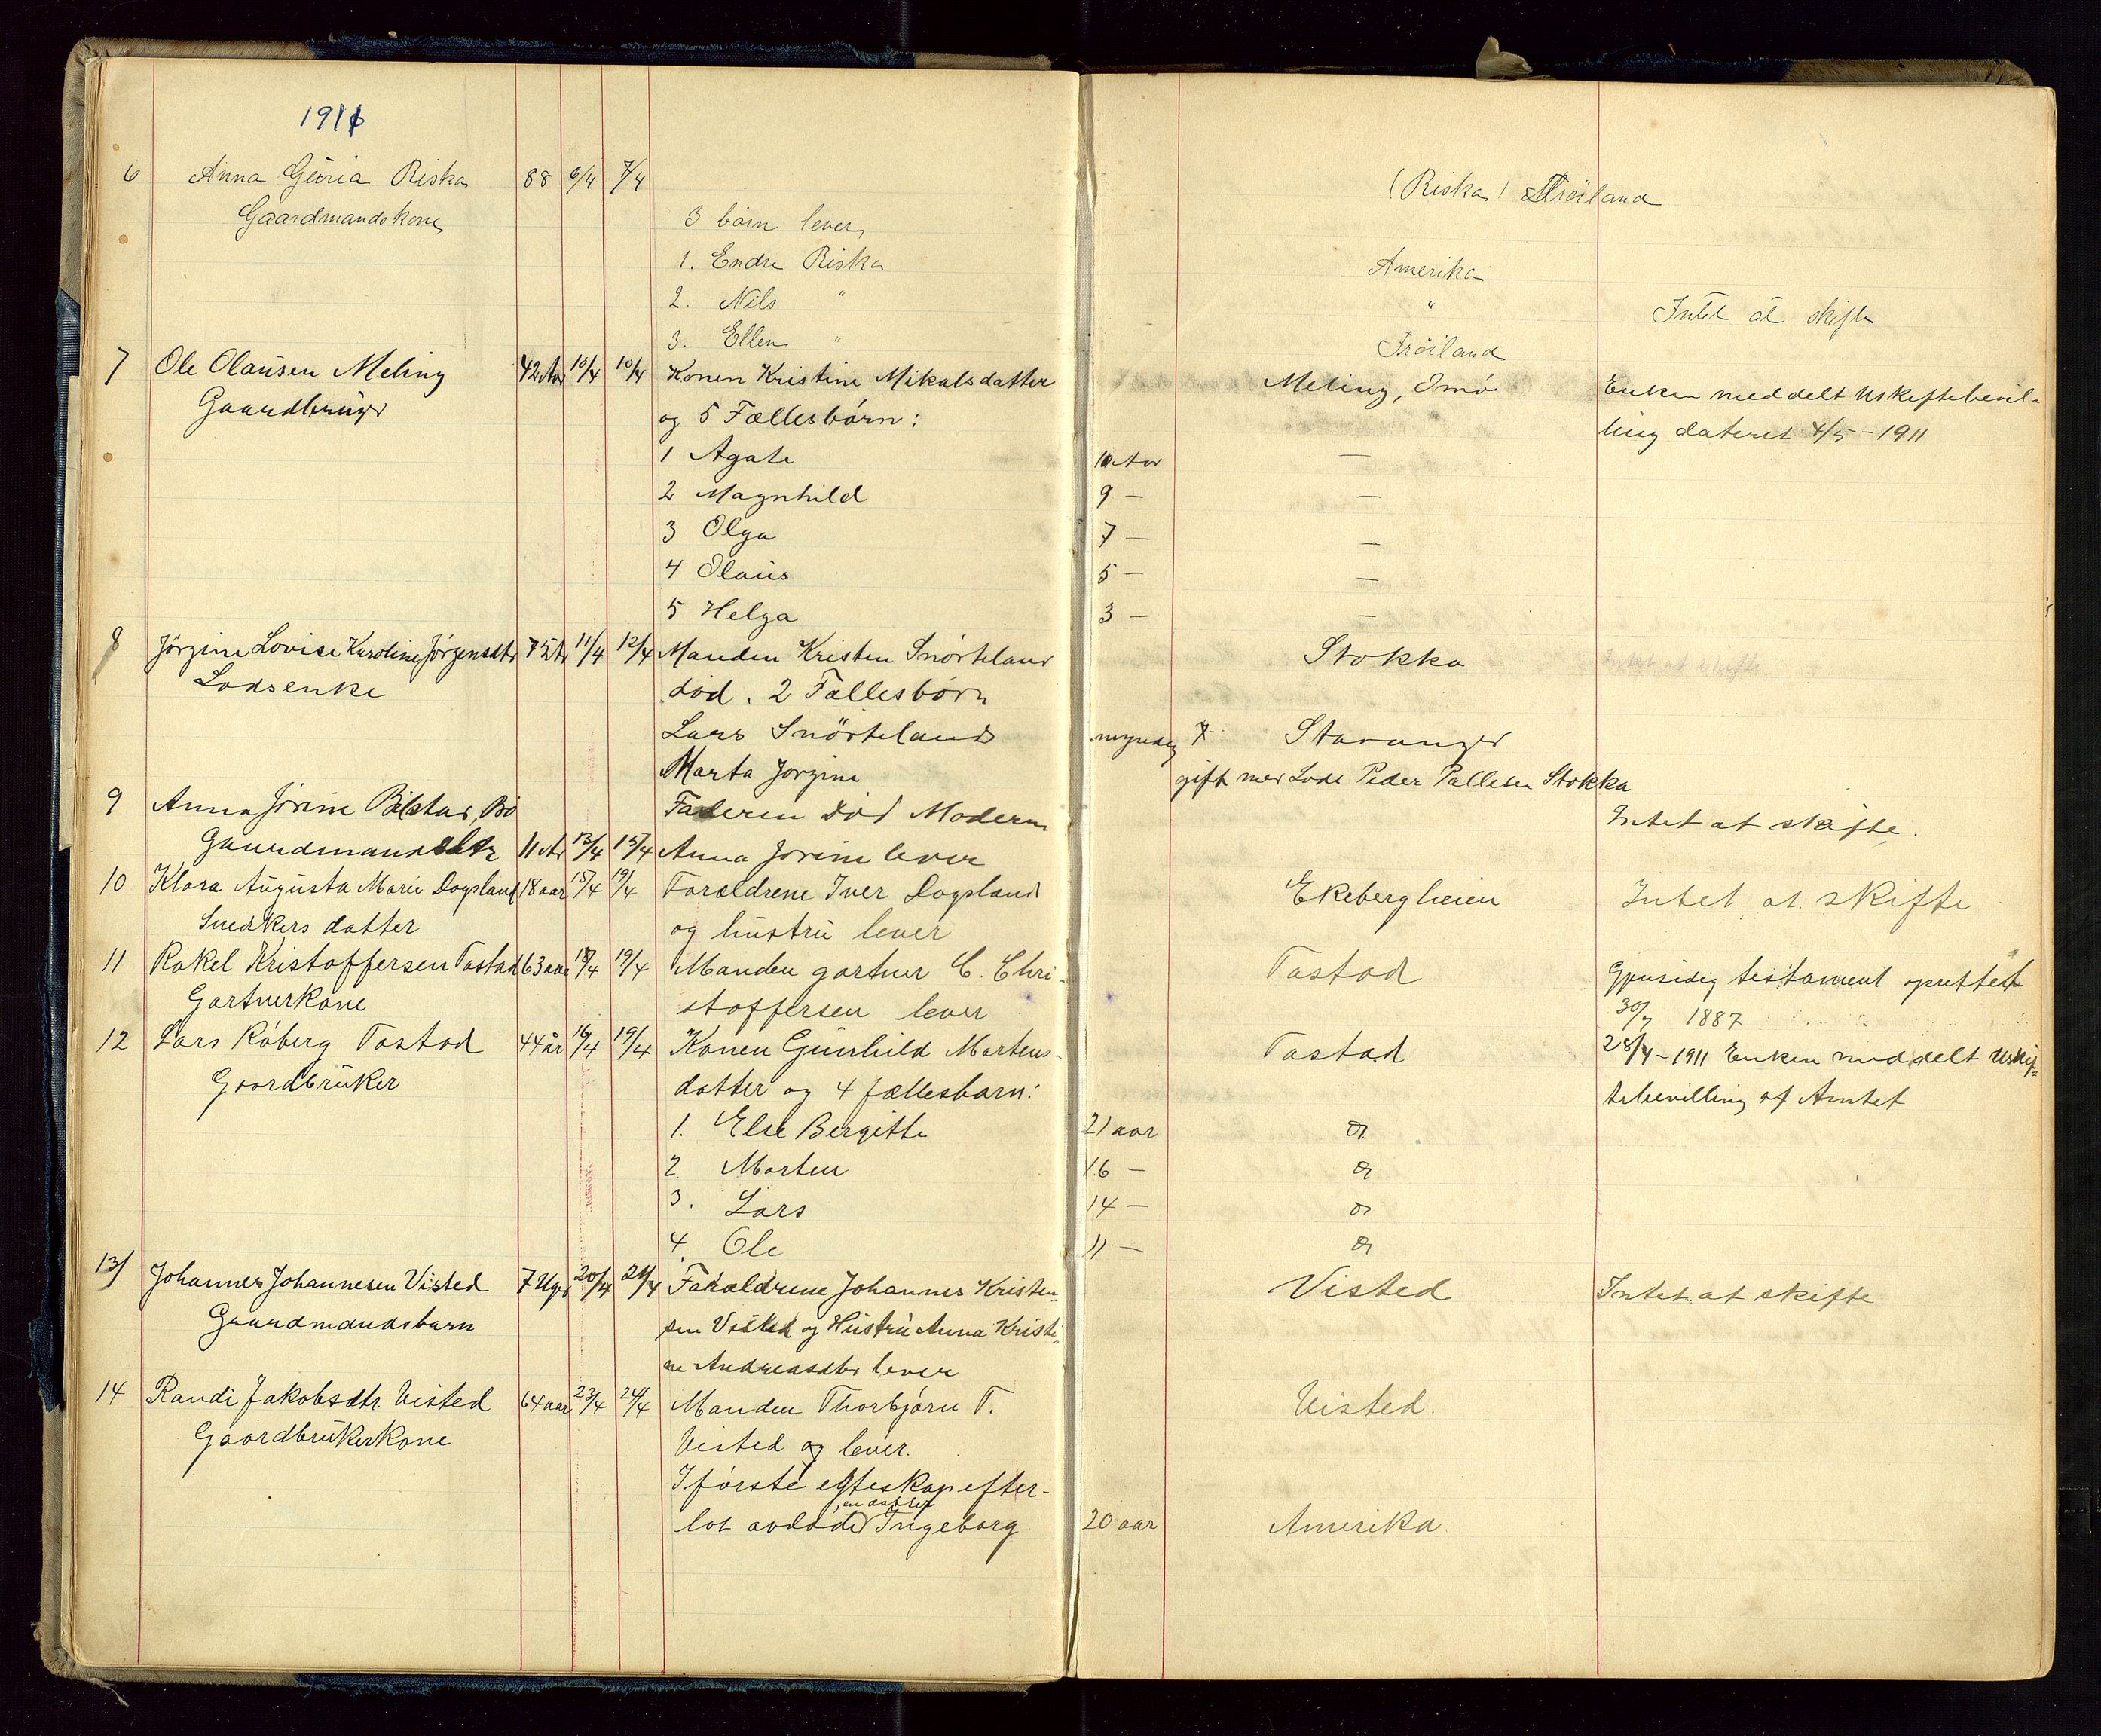 1911
6 Anna Gúria Riska 88 6/4 7/4 (Riska) Fröiland
Gaardmandskone 3 børn lever
1. Endre Riska Amerika
2. Nils " " Intet at skifte
3. Ellen " Fröiland
7 Ole Olaúsen Meling 42 Aar 10/4 10/4 Konen Kristine Mikalsdatter Meling, Omø Enken meddelt Uskiftebevil-
Gaardbrúger og 5 Fællesbørn: ling dateret 4/5-1911
1 Agate 10 Aar —
2 Magnhild 9 — —
3 Olga 7 — —
4 Olaús 5 — —
5 Helga 3 — —
8 Jørgine Lovise Karoline Jørgensdtr 75 Ar 11/4 12/4 Manden Kristen Snørteland Stokka Intet at skifte
Lodsenke død. 2 Fællesbørn
Lars Snörteland myndig Stavanger
Marta Jorgine gift med Lods Peder Pallesen Stokka
9 Anna Jorine Bø Faderen Død Moderen Intet at skifte.
Gaardmandsdtr 11 Ar 12/4 15/4 Anna Jorine lever
10 Klara Augústa Marie Dogsland 18 aar 15/4 19/4 Forældrene Iver Dogsland Ekebergheien Intet at skifte
Snedkers datter og hústrú lever
11 Rakel Kristoffersen Tastad 63 aar 18/4 19/4 Manden gartner C. Chri- Tastad Gjensidig testament oprettet
Gartnerkone stoffersen lever 30/7 1887
12 Lars Røberg Tastad 44 år 16/4 19/4 Konen Gúnhild Martens- Tastad 28/4-1911 Enken meddelt Uskif-
Gaardbrúker datter og 4 fællesbarn: tebevilling af Amtet
1. Else Bergitte 21 aar
2. Morten 16 —
3. Lars 14 —
4. Ole 11 —
13 Johannes Johannesen Visted 7 Uger 20/4 21/4 Forældrene Johannes Kristen- Visted Intet at skifte
Gaardmandsbarn sen Visted og Hústrú Anna Kristi-
ne Andreasdtr lever
14 Randi Jakobsdtr. Visted 64 aar 23/4 24/4 Manden Thorbjørn T. Visted.
Gaardbrúkerkone Visted og lever.
I første egteskap efter-
lot avdøde, en datter Ingeborg 20 aar Amerika